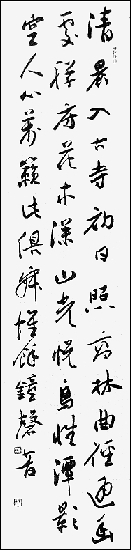 清晨入古寺初日照高林曲徑通幽
處禪房花木深山光悅鳥性潭影
空人心萬籟此俱寂惟餘鐘磬音